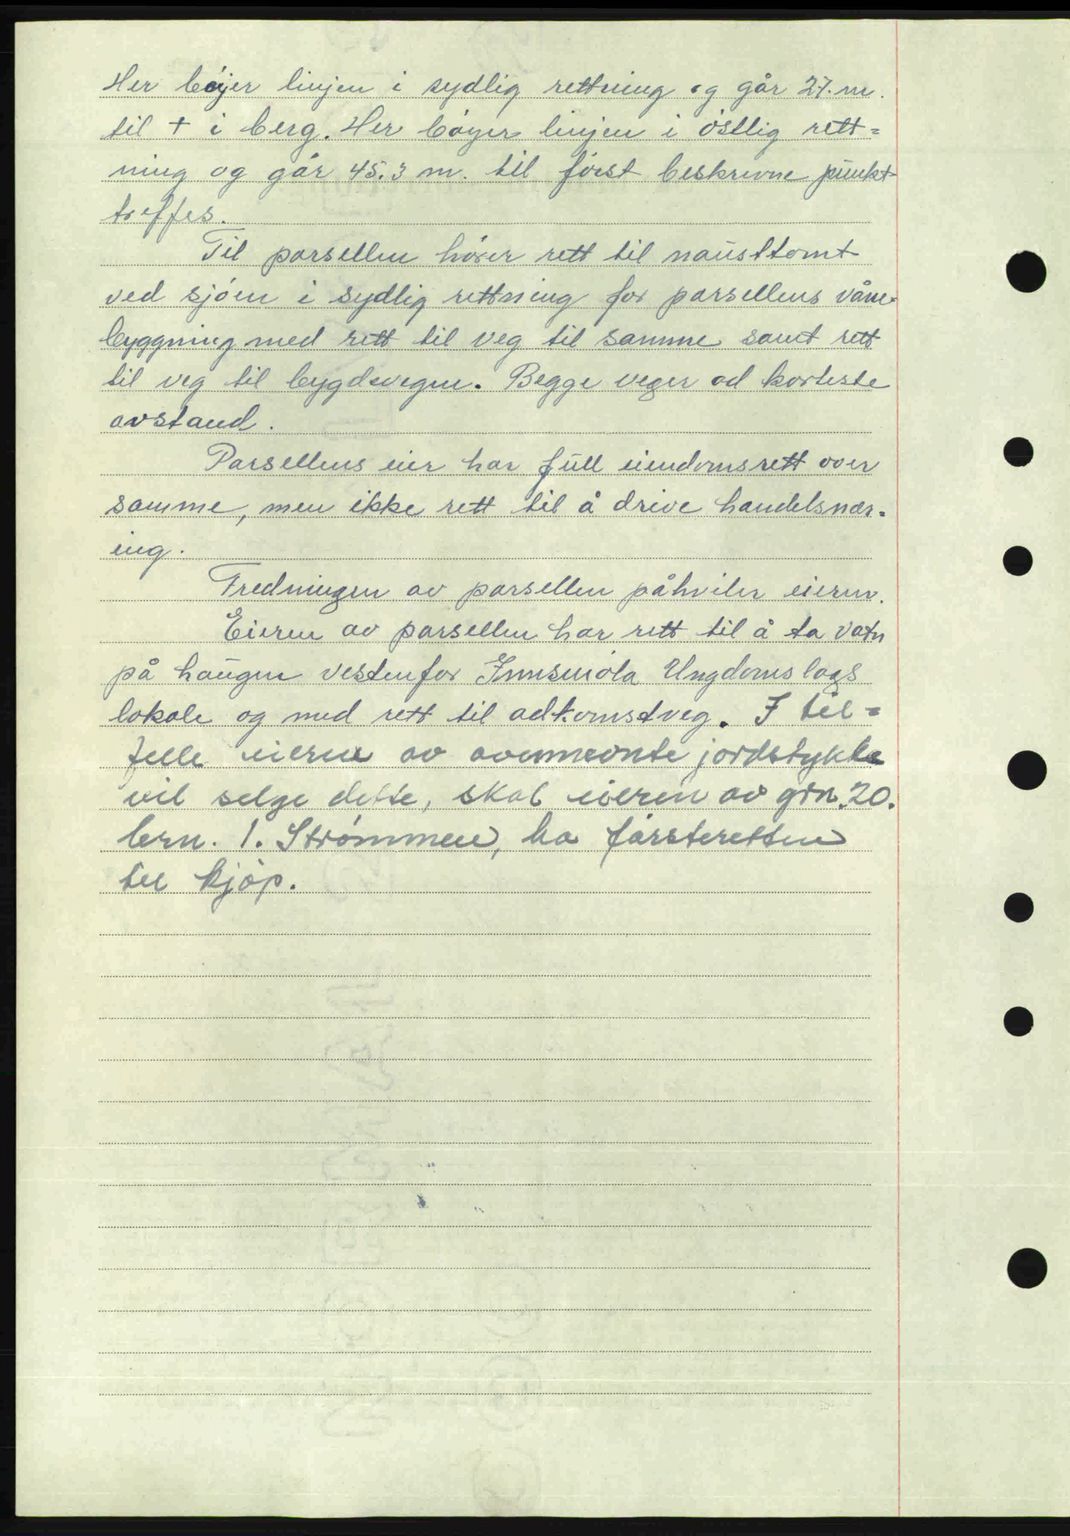 Her böyer linjen i sydlig rettning og går 27. m.
til + i berg. Her böyer linjen i östlig rett=
ning og går 45.3 m. til först beskrevne punkt
treffes.
Til parsellen hörer rett til nausttomt
ved sjöen i sydlig rettning for parsellens våne-
byggning med rett til veg til samme samt rett
til veg til bygdevegen. Begge veger ad korteste
avstand.
Parsellens eier har full eiendomsrett over
samme, men ikke rett til å drive handelsnær=
ing.
Fredningen av parsellen påhviler eieren.
Eieren av parsellen har rett til å ta vatn
på haugen vestenfor Innsmöla Ungdomslags
lokale og med rett til adkomstveg. I til=
felle eieren av ovennevnte jordstykke
vil selge dette, skal eieren av grn. 20.
brn. 1. Strømmen, ha førsteretten
til kjöp.